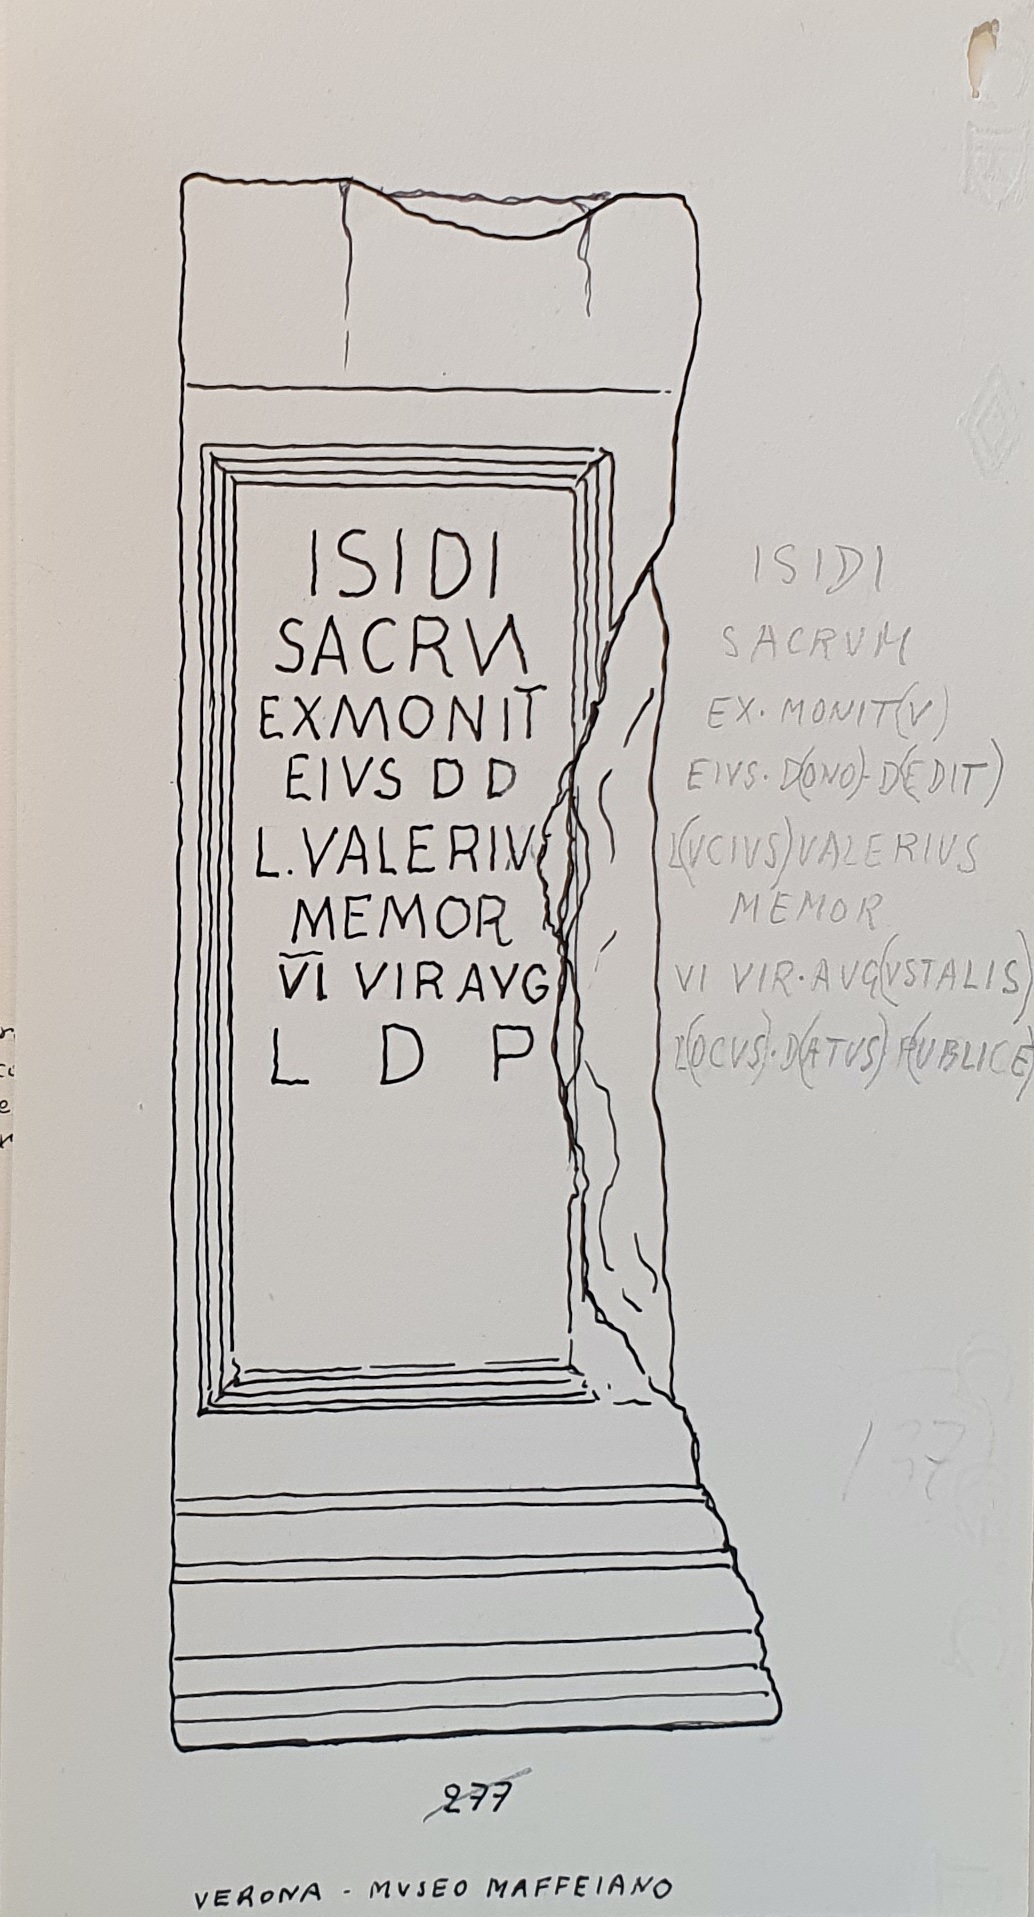 ISIDI
SACRVM
EXMONIT
EIVS D D
L. VALERIV
MEMOR
VI VIR AVG
L D P
ISIDI
SACRVM
EX · MONIT(V)
EIVS · D(ONO) · D(EDIT)
L(VCIVS) VALERIVS
MEMOR
VI VIR · AVG(VSTALIS)
L(OCVS) · D(ATVS) P(UBLICE)
277
VERONA - MVSEO MAFFEIANO